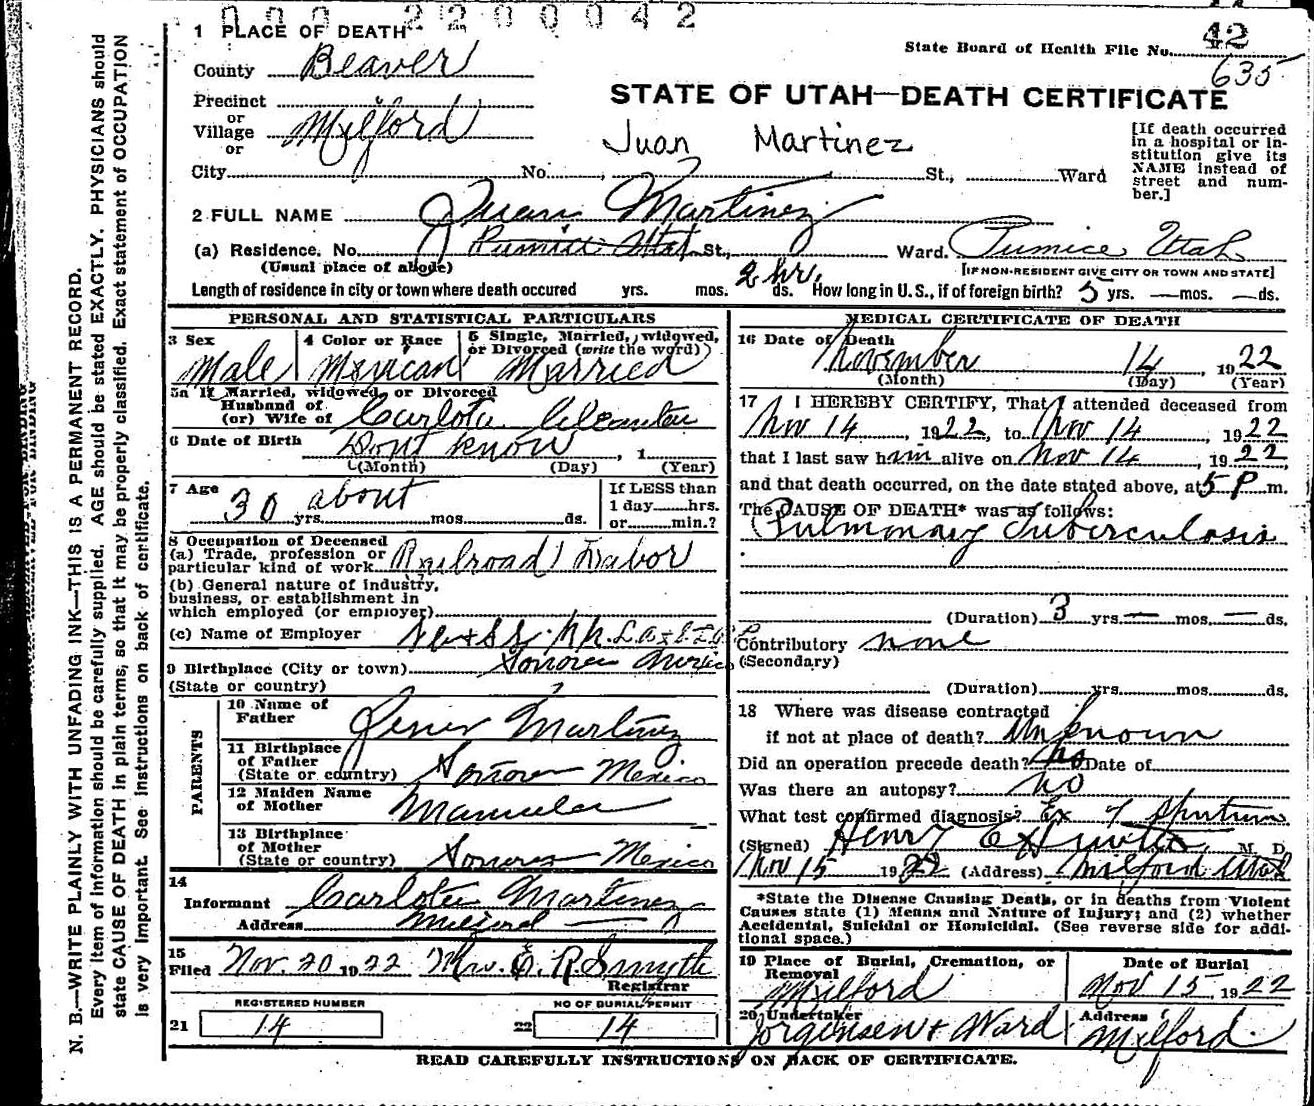 000 2200042
42
1 PLACE OF DEATH
State Board of Health File No. 635
County Beaver
STATE OF UTAH—DEATH CERTIFICATE
Precinct
or
Village Milford
or
Juan Martinez
[If death occurred in a hospital or institution give its NAME instead of street and number.]
City No. , St., Ward
2 FULL NAME Juan Martinez
(a) Residence. No. Pumice Utah St., Ward. Pumice Utah
(Usual place of abode) [IF NON-RESIDENT GIVE CITY OR TOWN AND STATE]
Length of residence in city or town where death occured yrs. mos. 2 hr. ds. How long in U. S., if of foreign birth? 5 yrs. — mos. — ds.
PERSONAL AND STATISTICAL PARTICULARS
3 Sex Male
4 Color or Race Mexican
5 Single, Married, widowed, or Divorced (write the word) Married
5a If Married, widowed, or Divorced
Husband of
(or) Wife of Carlota
6 Date of Birth Dont know , 1
(Month) (Day) (Year)
7 Age about
30 yrs. mos. ds.
If LESS than
1 day hrs.
or min.?
8 Occupation of Deceased
(a) Trade, profession or
particular kind of work Railroad Labor
(b) General nature of industry,
business, or establishment in
which employed (or employer)
(c) Name of Employer
9 Birthplace (City or town) Sonora Mexico
(State or country)
PARENTS
10 Name of
Father Martinez
11 Birthplace
of Father
(State or country) Sonora Mexico
12 Maiden Name
of Mother Manuela
13 Birthplace
of Mother
(State or country) Sonora Mexico
14
Informant Carlota Martinez
Address Milford
15
Filed Nov. 20 1922 Mrs. E. R. Smyth
Registrar
REGISTERED NUMBER
21 14
NO OF BURIAL PERMIT
22 14
MEDICAL CERTIFICATE OF DEATH
16 Date of Death
November 14 , 1922
(Month) (Day) (Year)
17 I HEREBY CERTIFY, That I attended deceased from
Nov 14 , 1922, to Nov 14 , 1922
that I last saw him alive on Nov 14 , 1922,
and that death occurred, on the date stated above, at 5 P m.
The CAUSE OF DEATH* was as follows:
Pulmonary Tuberculosis
(Duration) 3 yrs. — mos. — ds.
Contributory none
(Secondary)
(Duration) yrs. mos. ds.
18 Where was disease contracted
if not at place of death? Unknown
Did an operation precede death? no Date of
Was there an autopsy? no
What test confirmed diagnosis? Ex of Sputum
(Signed) Henry M. D.
Nov 15 1922 (Address) Milford Utah
*State the Disease Causing Death, or in deaths from Violent
Causes state (1) Means and Nature of Injury; and (2) whether
Accidental, Suicidal or Homicidal. (See reverse side for additional space.)
19 Place of Burial, Cremation, or
Removal
Milford
Date of Burial
Nov 15, 1922
20 Undertaker
Jorgensen & Ward
Address
Milford.
READ CAREFULLY INSTRUCTIONS ON BACK OF CERTIFICATE.
N. B.—WRITE PLAINLY WITH UNFADING INK—THIS IS A PERMANENT RECORD.
Every item of information should be carefully supplied. AGE should be stated EXACTLY. PHYSICIANS should
state CAUSE OF DEATH in plain terms, so that it may be properly classified. Exact statement of OCCUPATION
is very important. See instructions on back of certificate.